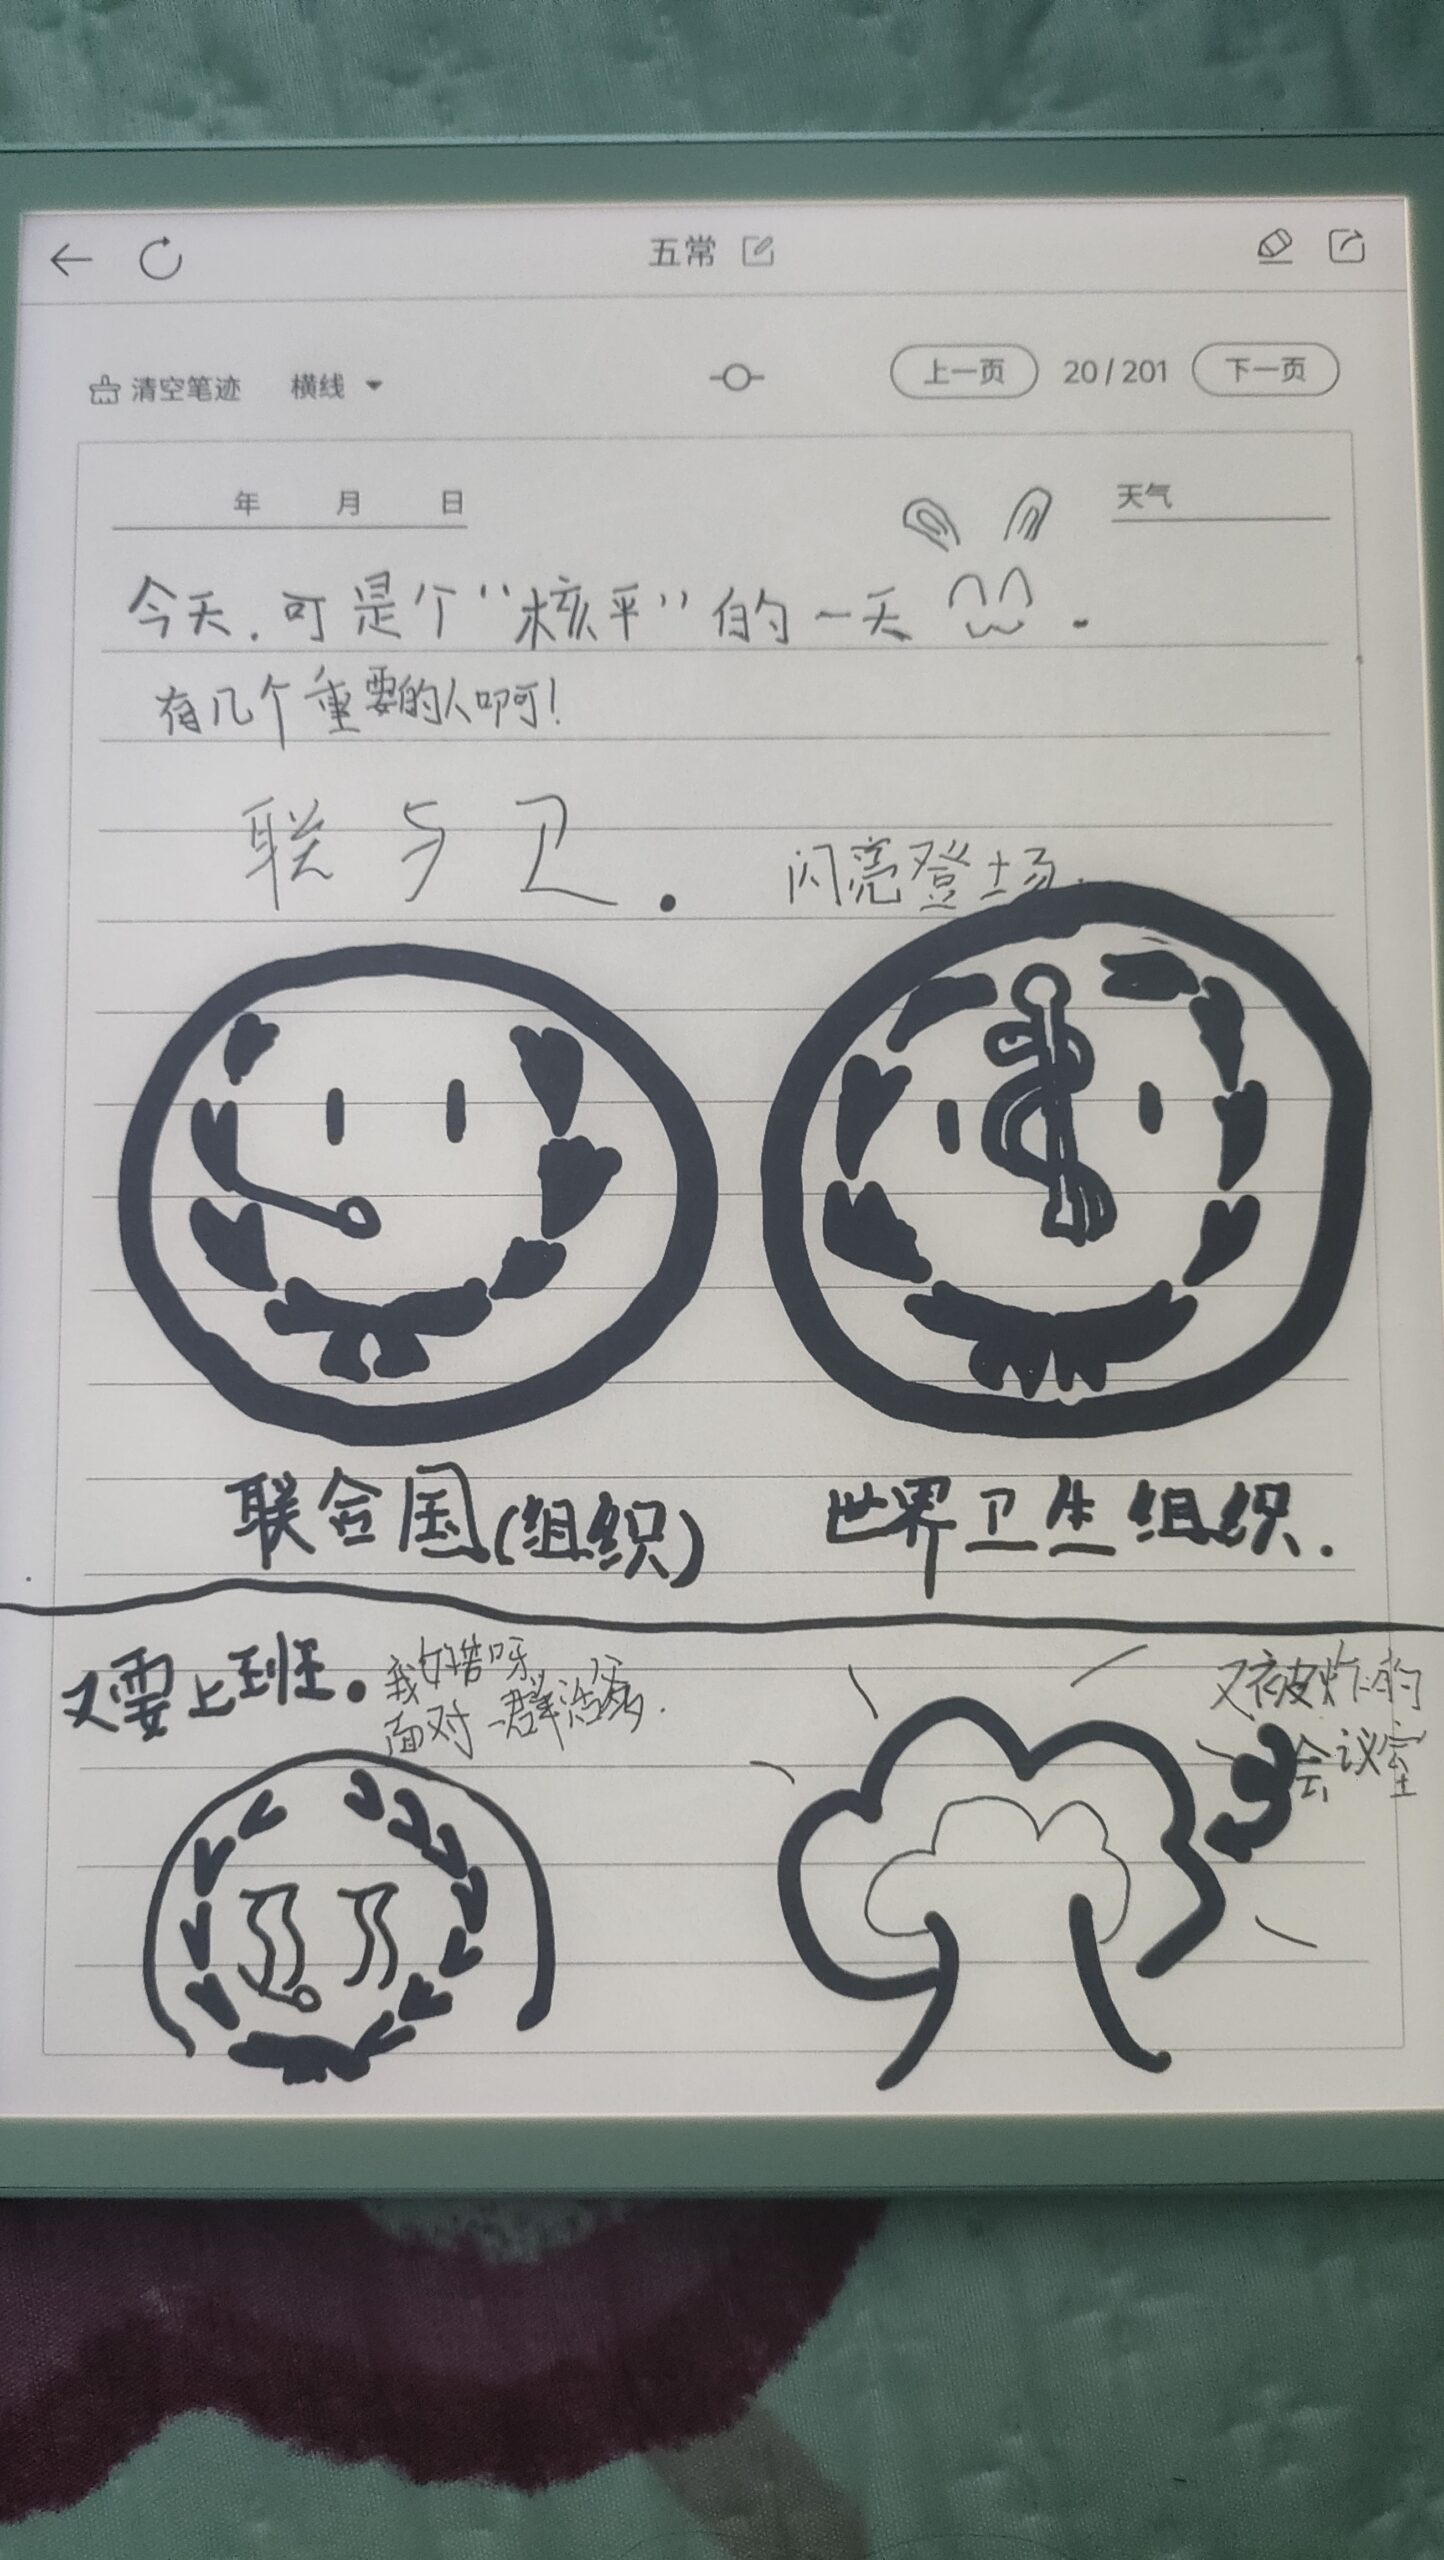 五常
清空笔迹 横线 上一页 20/201 下一页
年 月 日 天气
今天.可是个“核平”的一天.
有几个重要的人啊!
联与卫. 闪亮登场.
联合国(组织) 世界卫生组织.
又要上班.
我好苦呀
面对一群活爹.
又被炸的
会议室